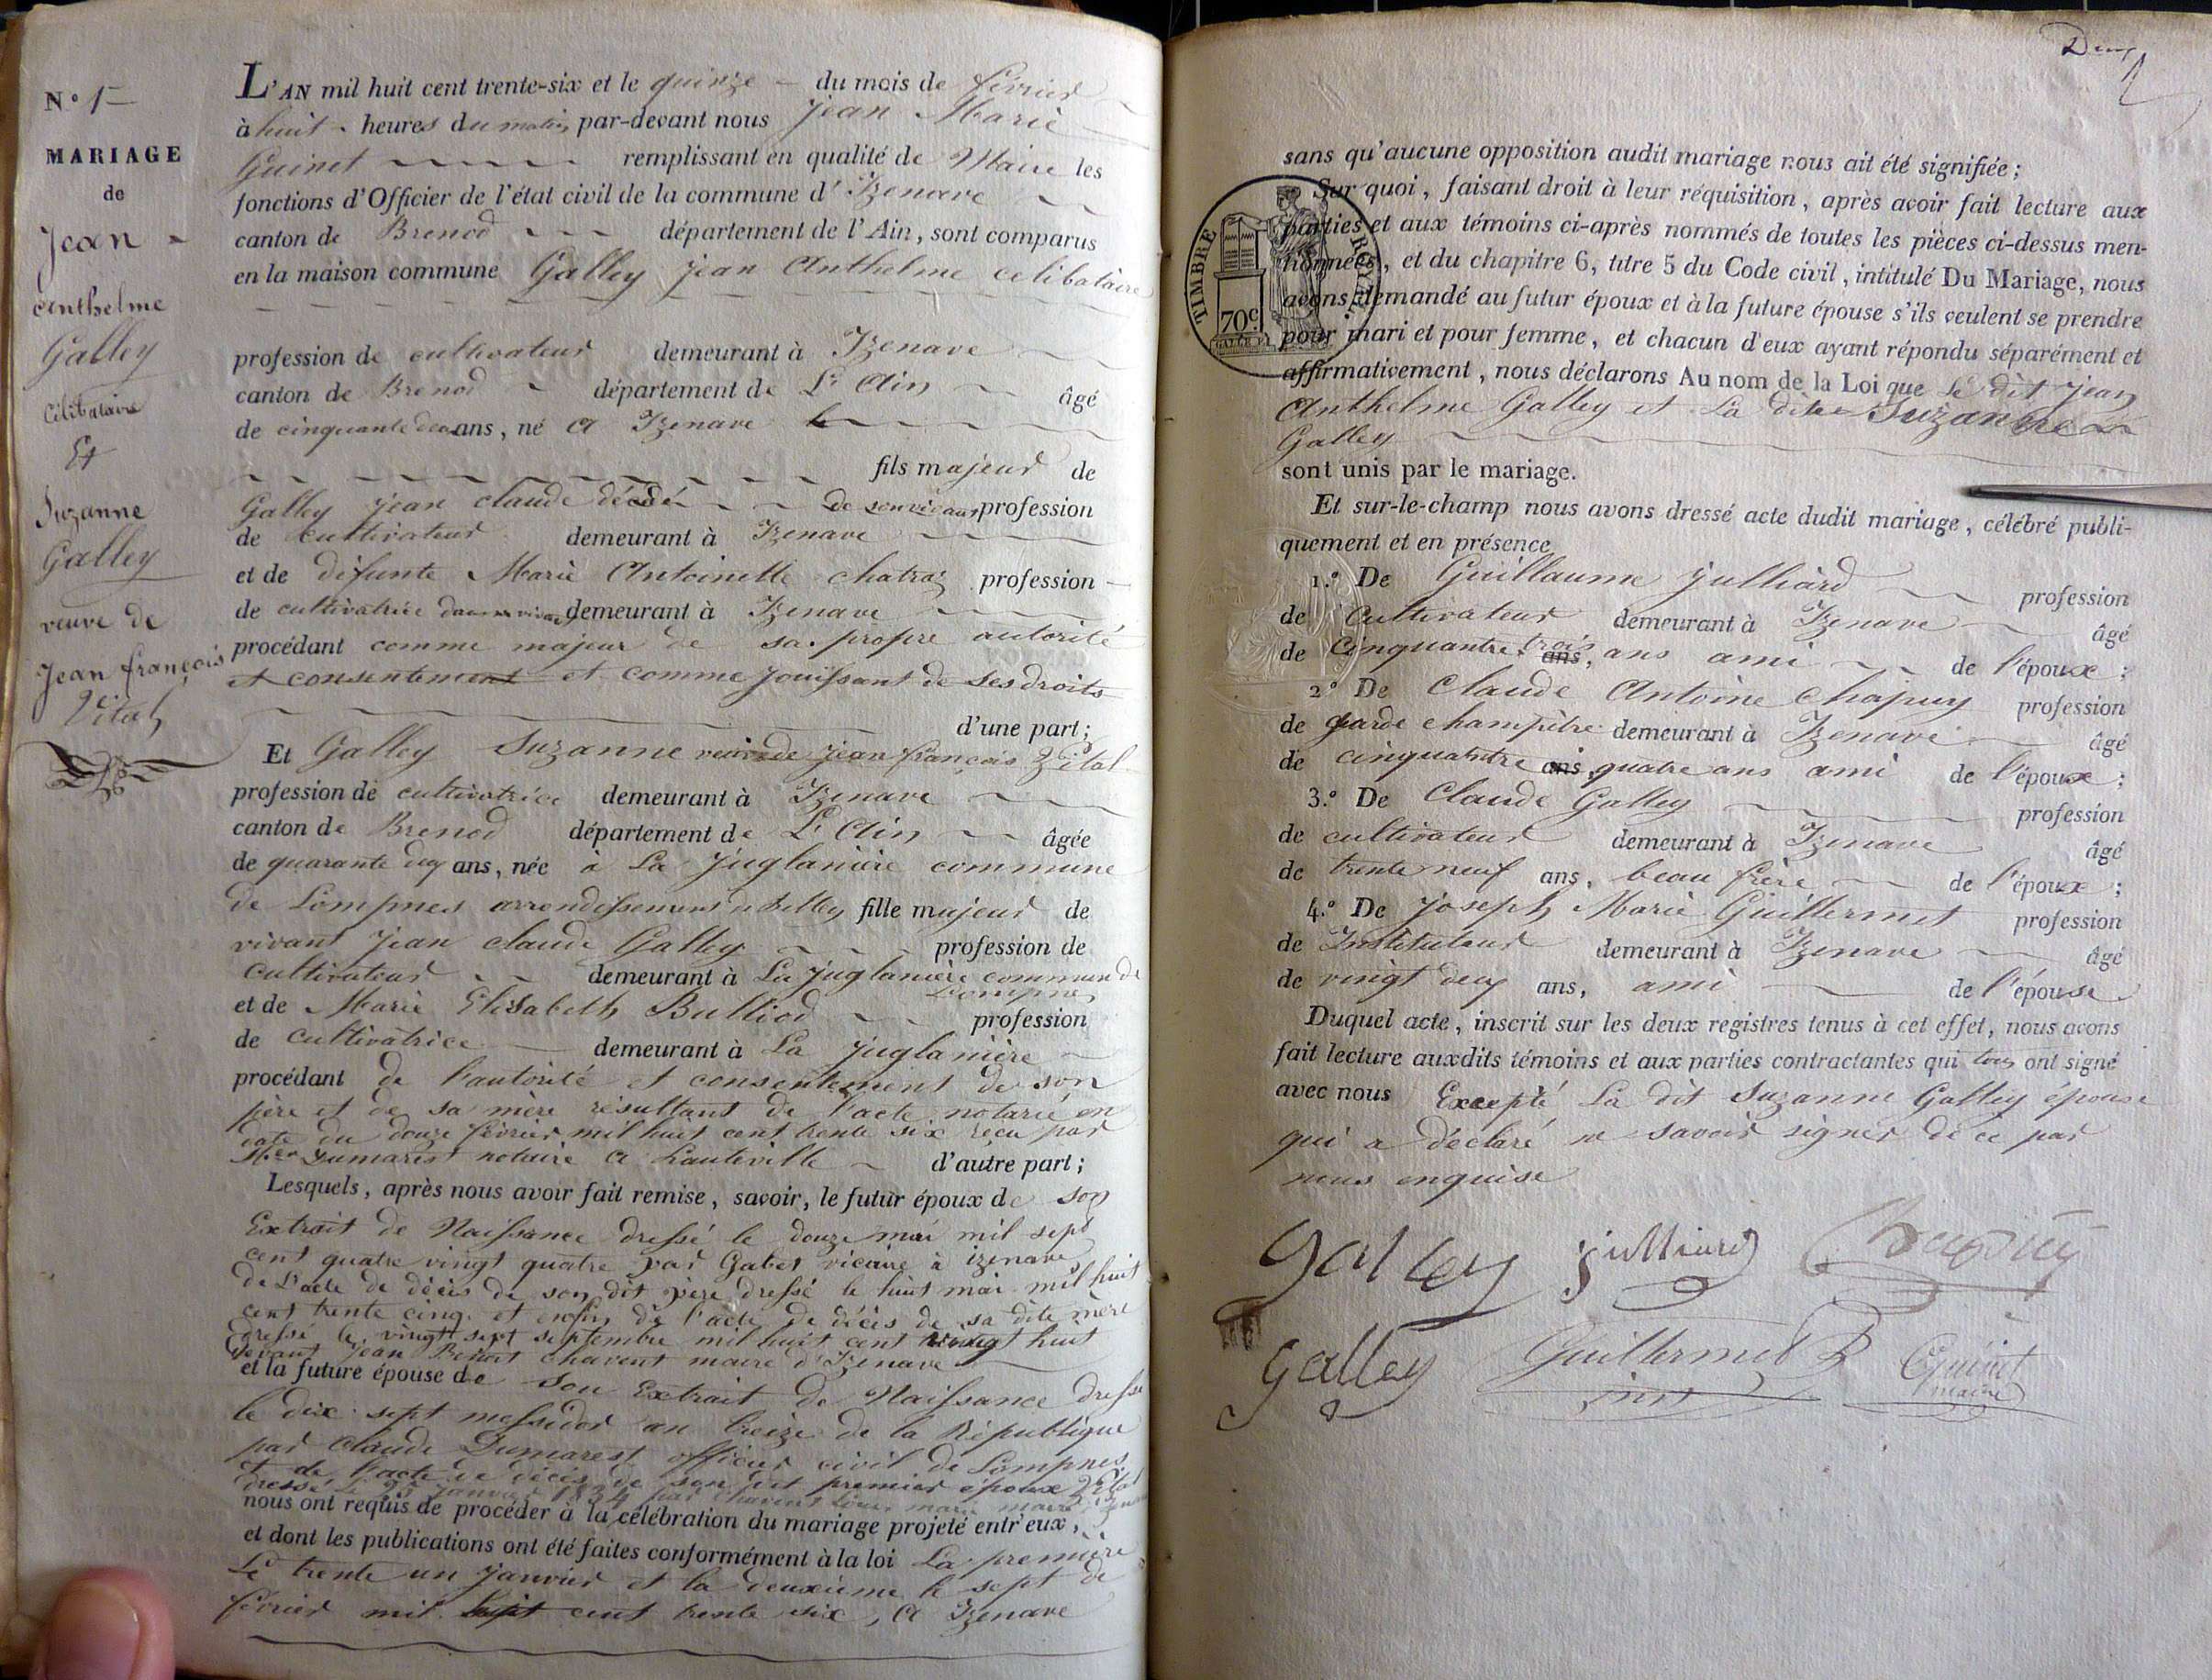 N.º 1
MARIAGE
de
Jean
anthelme
Galley
Célibataire
Et
Suzanne
Galley
veuve de
Jean françois
Vital
L'AN mil huit cent trente-six et le quinze du mois de février
à huit heures du matin par-devant nous Jean Marie
Guinet remplissant en qualité de Maire les
fonctions d'Officier de l'état civil de la commune d'Izenave
canton de Brenod département de l'Ain, sont comparus
en la maison commune Galley Jean Anthelme celibataire
profession de cultivateur demeurant à Izenave
canton de Brenod département de L'Ain âgé
de cinquante deux ans, né a Izenave
fils majeur de
Galley Jean claude décédé de son vivant profession
de cultivateur demeurant à Izenave
et de défunte Marie Antoinette chatraz profession
de cultivatrice demeurant à Izenave
procédant comme majeur de sa propre autorité
et consentement et comme jouissant de ses droits
d'une part;
Et Galley Suzanne veuve de Jean françois Vital
profession de cultivatrice demeurant à Izenave
canton de Brenod département de L'Ain âgée
de quarante deux ans, née à La Juglanière commune
de Lompnes arrondissement de belley fille majeur de
vivant Jean claude Galley profession de
cultivateur demeurant à La Juglanière commune de
Lompnes
et de Marie Elisabeth Bulliod profession
de cultivatrice demeurant à La Juglanière
procédant de l'autorité et consentement de son
père et de sa mère résultant de l'acte notarié en
date du douze février mil huit cent trente six reçu par
Dumarest notaire a hauteville d'autre part;
Lesquels, après nous avoir fait remise, savoir, le futur époux de son
Extrait de Naissance dressé le douze mai mil sept
cent quatre vingt quatre par Gabet vicaire à izenave
de L'acte de décès de son dit père dressé le huit mai mil huit
cent trente cinq et enfin de l'acte de décès de sa dite mère
dressé le vingt sept septembre mil huit cent vingt huit
devant Jean Benoit chavent maire d'Izenave
et la future épouse de son Extrait de Naissance dressé
le dix sept messidor an treize de la République
par Claude Dumarest officier civil de Lompnes
et de l'acte de décès de son dit premier époux Vital
dressé le 25 janvier 1834 par chavent maire
nous ont requis de procéder à la célébration du mariage projeté entr'eux,
et dont les publications ont été faites conformément à la loi La première
Le trente un Janvier et la deuxième le sept de
février mil cent trente six, a Izenave
Deux
sans qu'aucune opposition audit mariage nous ait été signifiée;
Sur quoi, faisant droit à leur réquisition, après avoir fait lecture aux
parties et aux témoins ci-après nommés de toutes les pièces ci-dessus men-
tionnées, et du chapitre 6, titre 5 du Code civil, intitulé Du Mariage, nous
avons demandé au futur époux et à la future épouse s'ils veulent se prendre
pour mari et pour femme, et chacun d'eux ayant répondu séparément et
affirmativement, nous déclarons Au nom de la Loi que Le dit Jean
Anthelme Galley et La dite Suzanne
Galley
sont unis par le mariage.
TIMBRE ROYAL
70c.
Et sur-le-champ nous avons dressé acte dudit mariage, célébré publi-
quement et en présence
1.º De Guillaume Julliard profession
de Cultivateur demeurant à Izenave âgé
de Cinquante trois ans, ans ami de l'époux;
2º De Claude Antoine Chapuy profession
de garde champêtre demeurant à Izenave âgé
de cinquante ans, quatre ans ami de l'époux;
3.º De Claude Galley profession
de cultivateur demeurant à Izenave âgé
de trente neuf ans, beau frère de l'époux;
4.º De Joseph Marie Guillermet profession
de Instituteur demeurant à Izenave âgé
de vingt deux ans, ami de l'épouse
Duquel acte, inscrit sur les deux registres tenus à cet effet, nous avons
fait lecture auxdits témoins et aux parties contractantes qui tous ont signé
avec nous Excepté La dit Suzanne Galley épouse
qui a déclaré ne savoir signer de ce par
nous enquise
Galley Julliard Chapuy
Galley Guillermet Guinet
inst maire